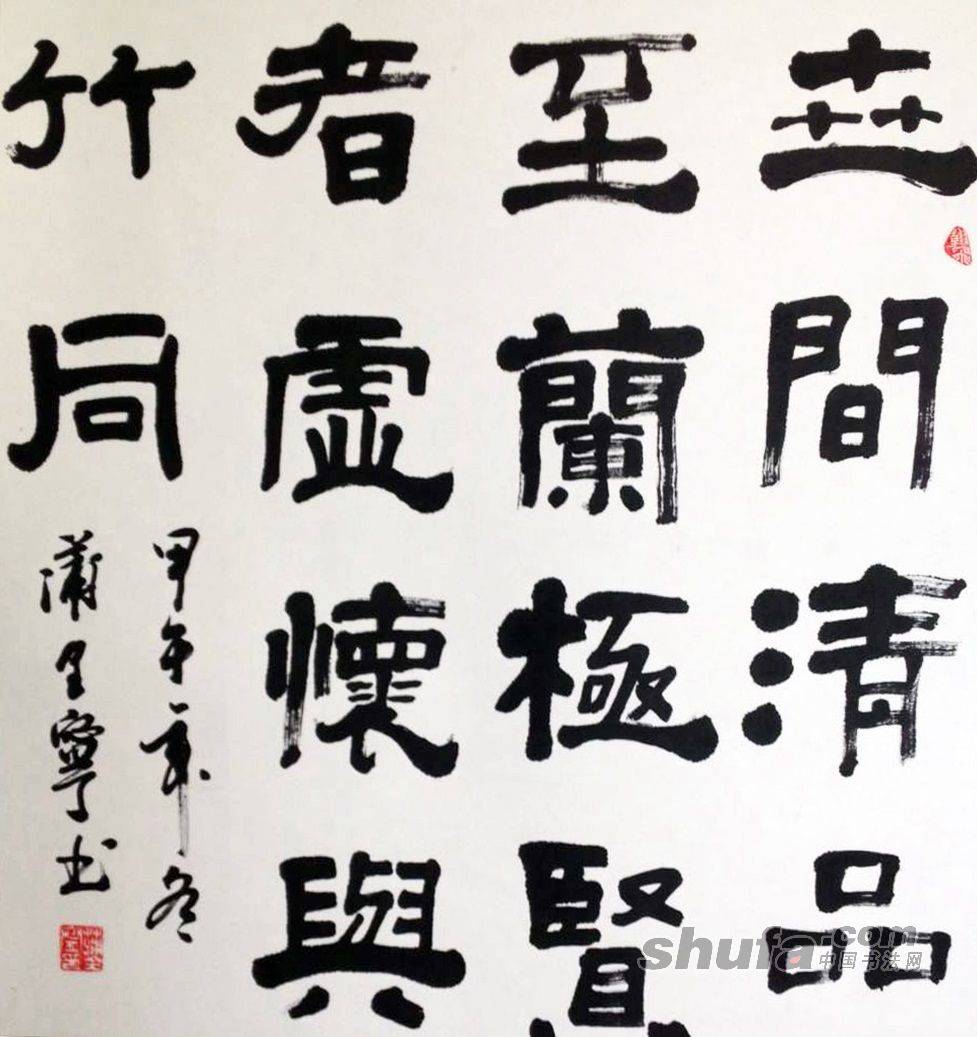 世間清品
至蘭極賢
者虛懷與
竹同
甲午年冬
蒲呈寧书
shufa.com
中国书法网